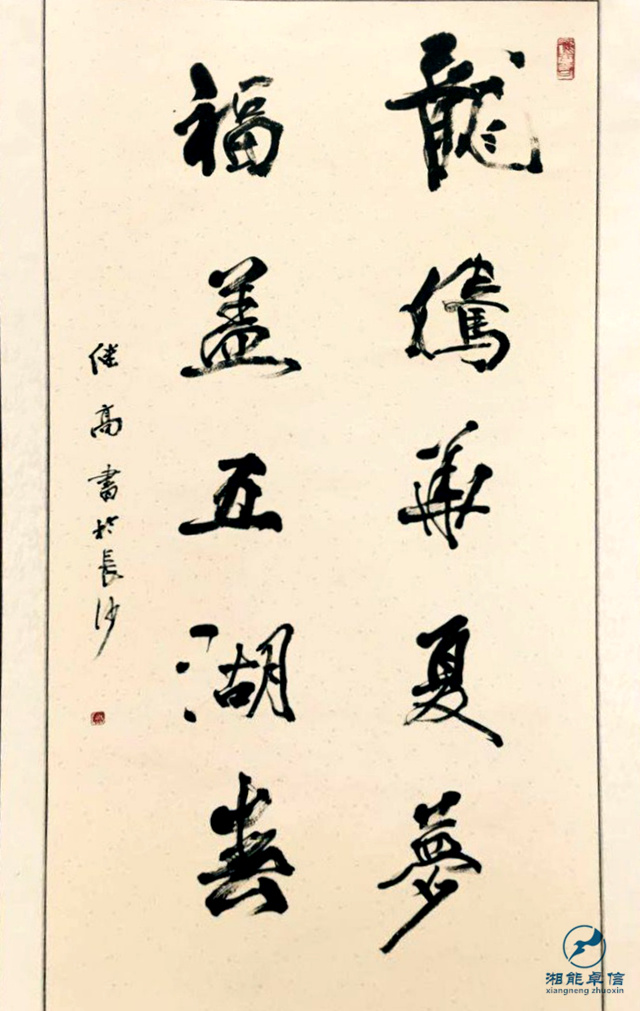 龍騰華夏夢
福盖五湖春
佳高書於長沙
湘能卓信
xiangneng zhuoxin